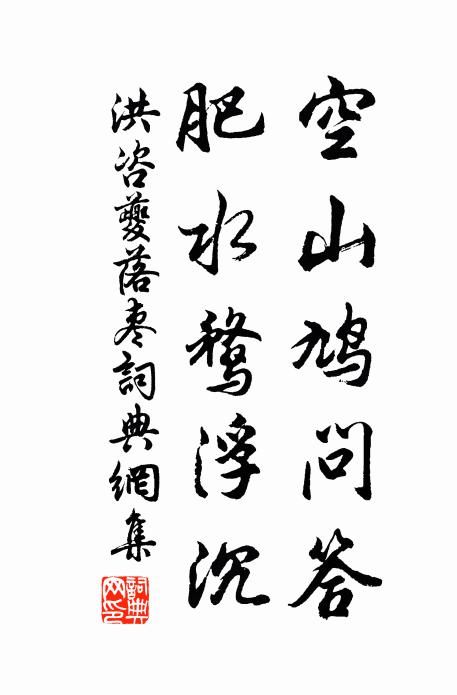 空山鳩問答
肥水鶩浮沉
洪咨夔落枣詞典網集
詞典网印